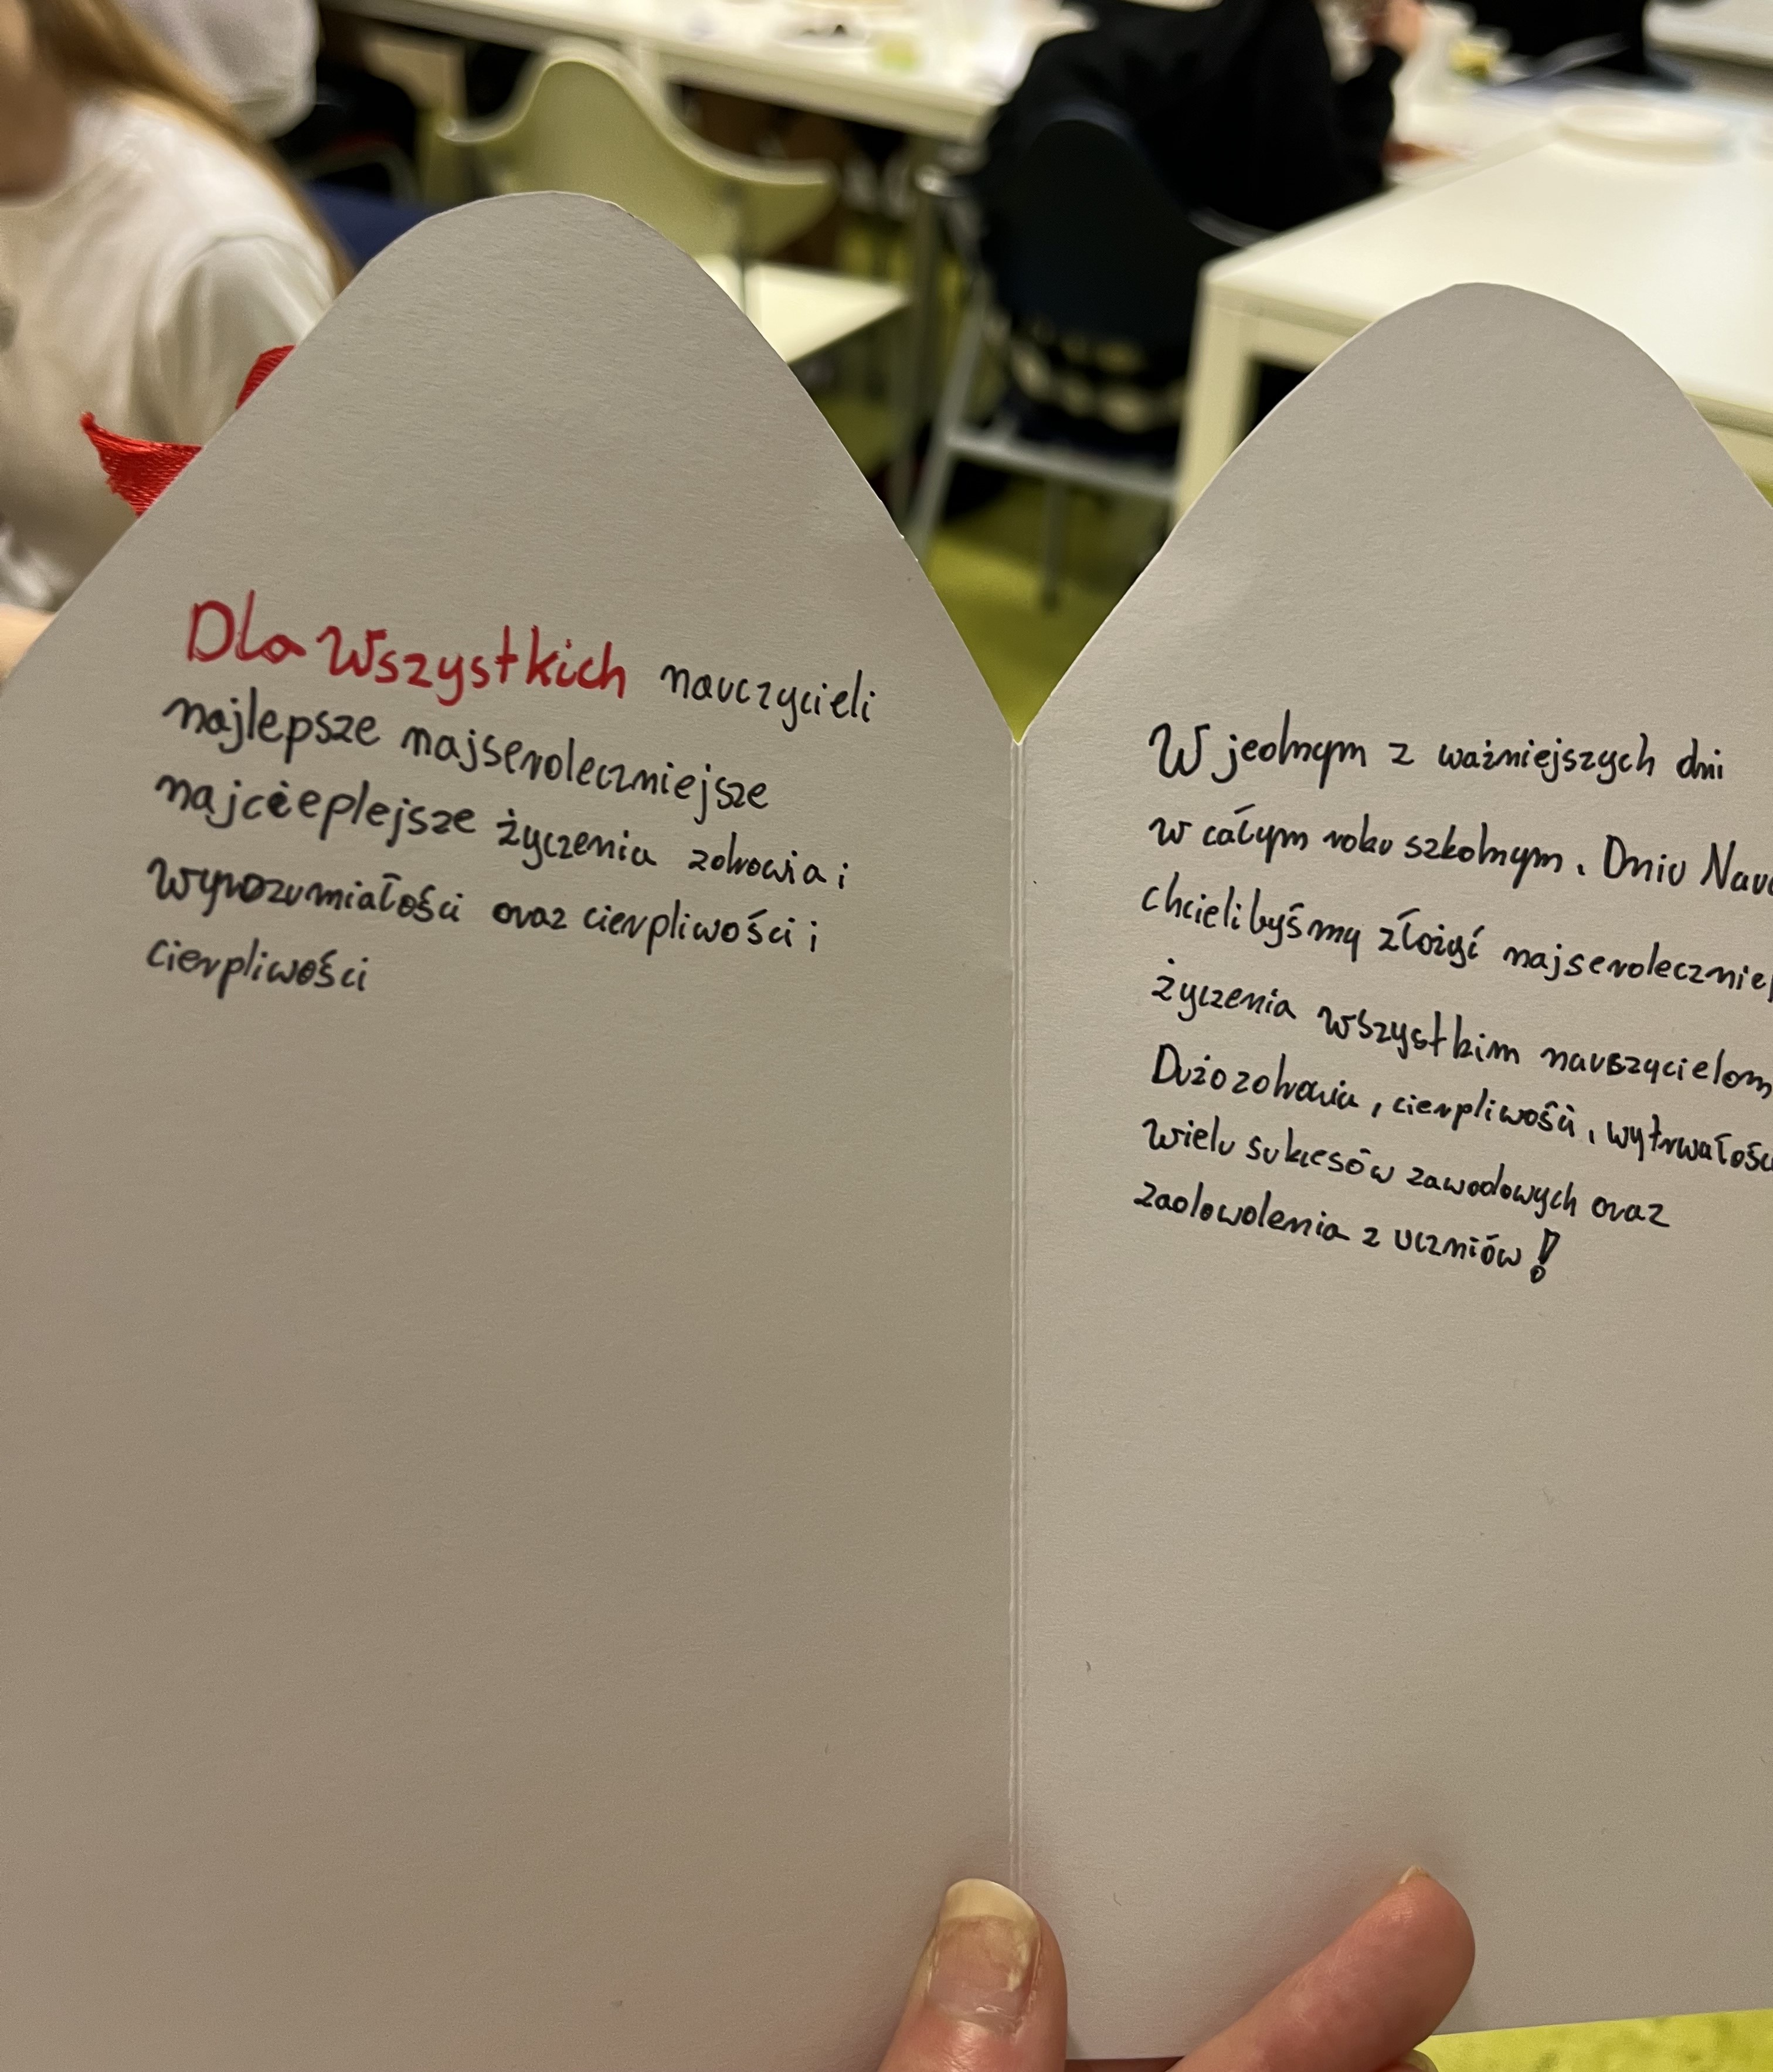 Dla Wszystkich nauczycieli
najlepsze najserdeczniejsze
najcieplejsze życzenia zdrowia i
wyrozumiałości oraz cierpliwości i
cierpliwości
W jednym z ważniejszych dni
w całym roku szkolnym. Dniu Nauc
chcielibyśmy złożyć najserdecznie
życzenia wszystkim nauszycielom
Dużo zdrowia, cierpliwości, wytrwałośc
wielu sukcesów zawodowych oraz
zadowolenia z uczniów!